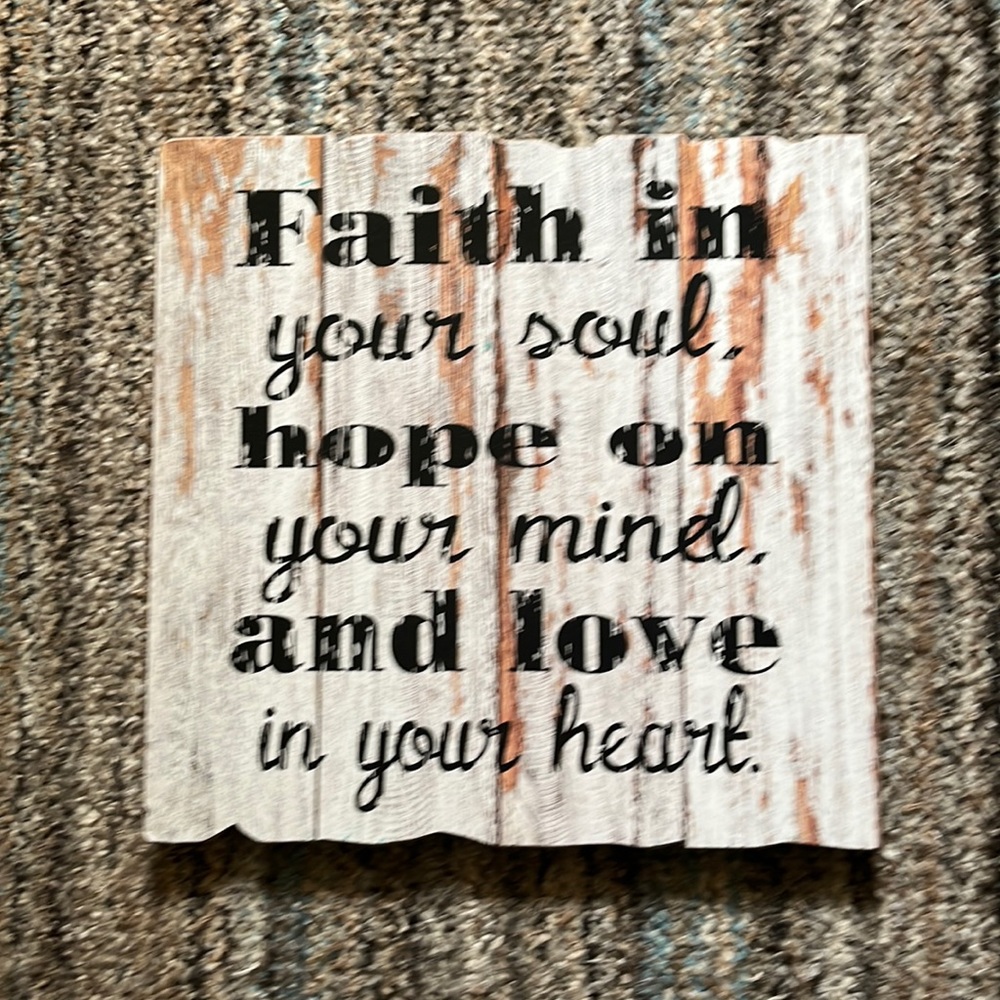 Faith in
your soul,
hope on
your mind,
and love
in your heart.